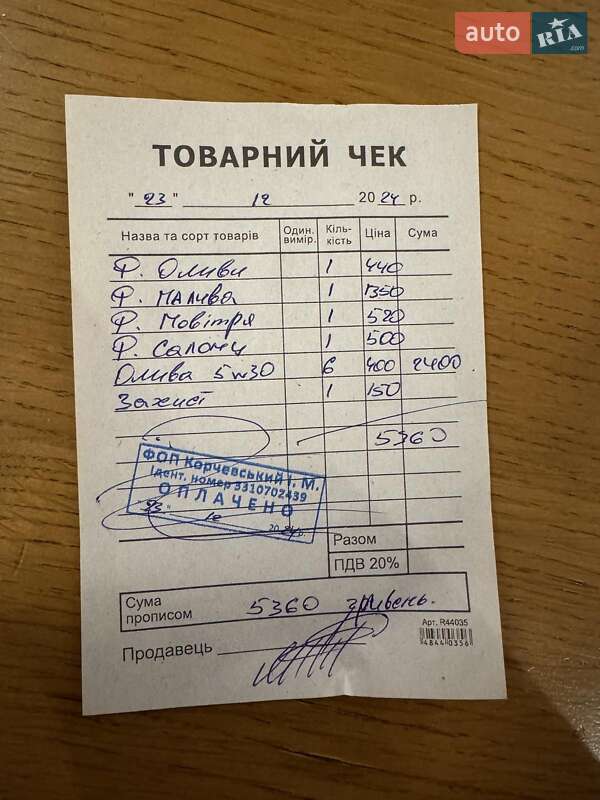 auto RIA .com
ТОВАРНИЙ ЧЕК
"23" 12 2024 р.
Назва та сорт товарів Один. вимір. Кіль-кість Ціна Сума
Ф. Оливи 1 440
Ф. Палива 1 1350
Ф. Повітря 1 520
Ф. Салону 1 500
Олива 5w30 6 400 2400
Захист 1 150
5360
ФОП Корчевський І. М.
Ідент. номер 3310702439
ОПЛАЧЕНО
"23" 12 2024р.
Разом
ПДВ 20%
Сума прописом 5360 гривень.
Арт. R44035
Продавець
4844 0356